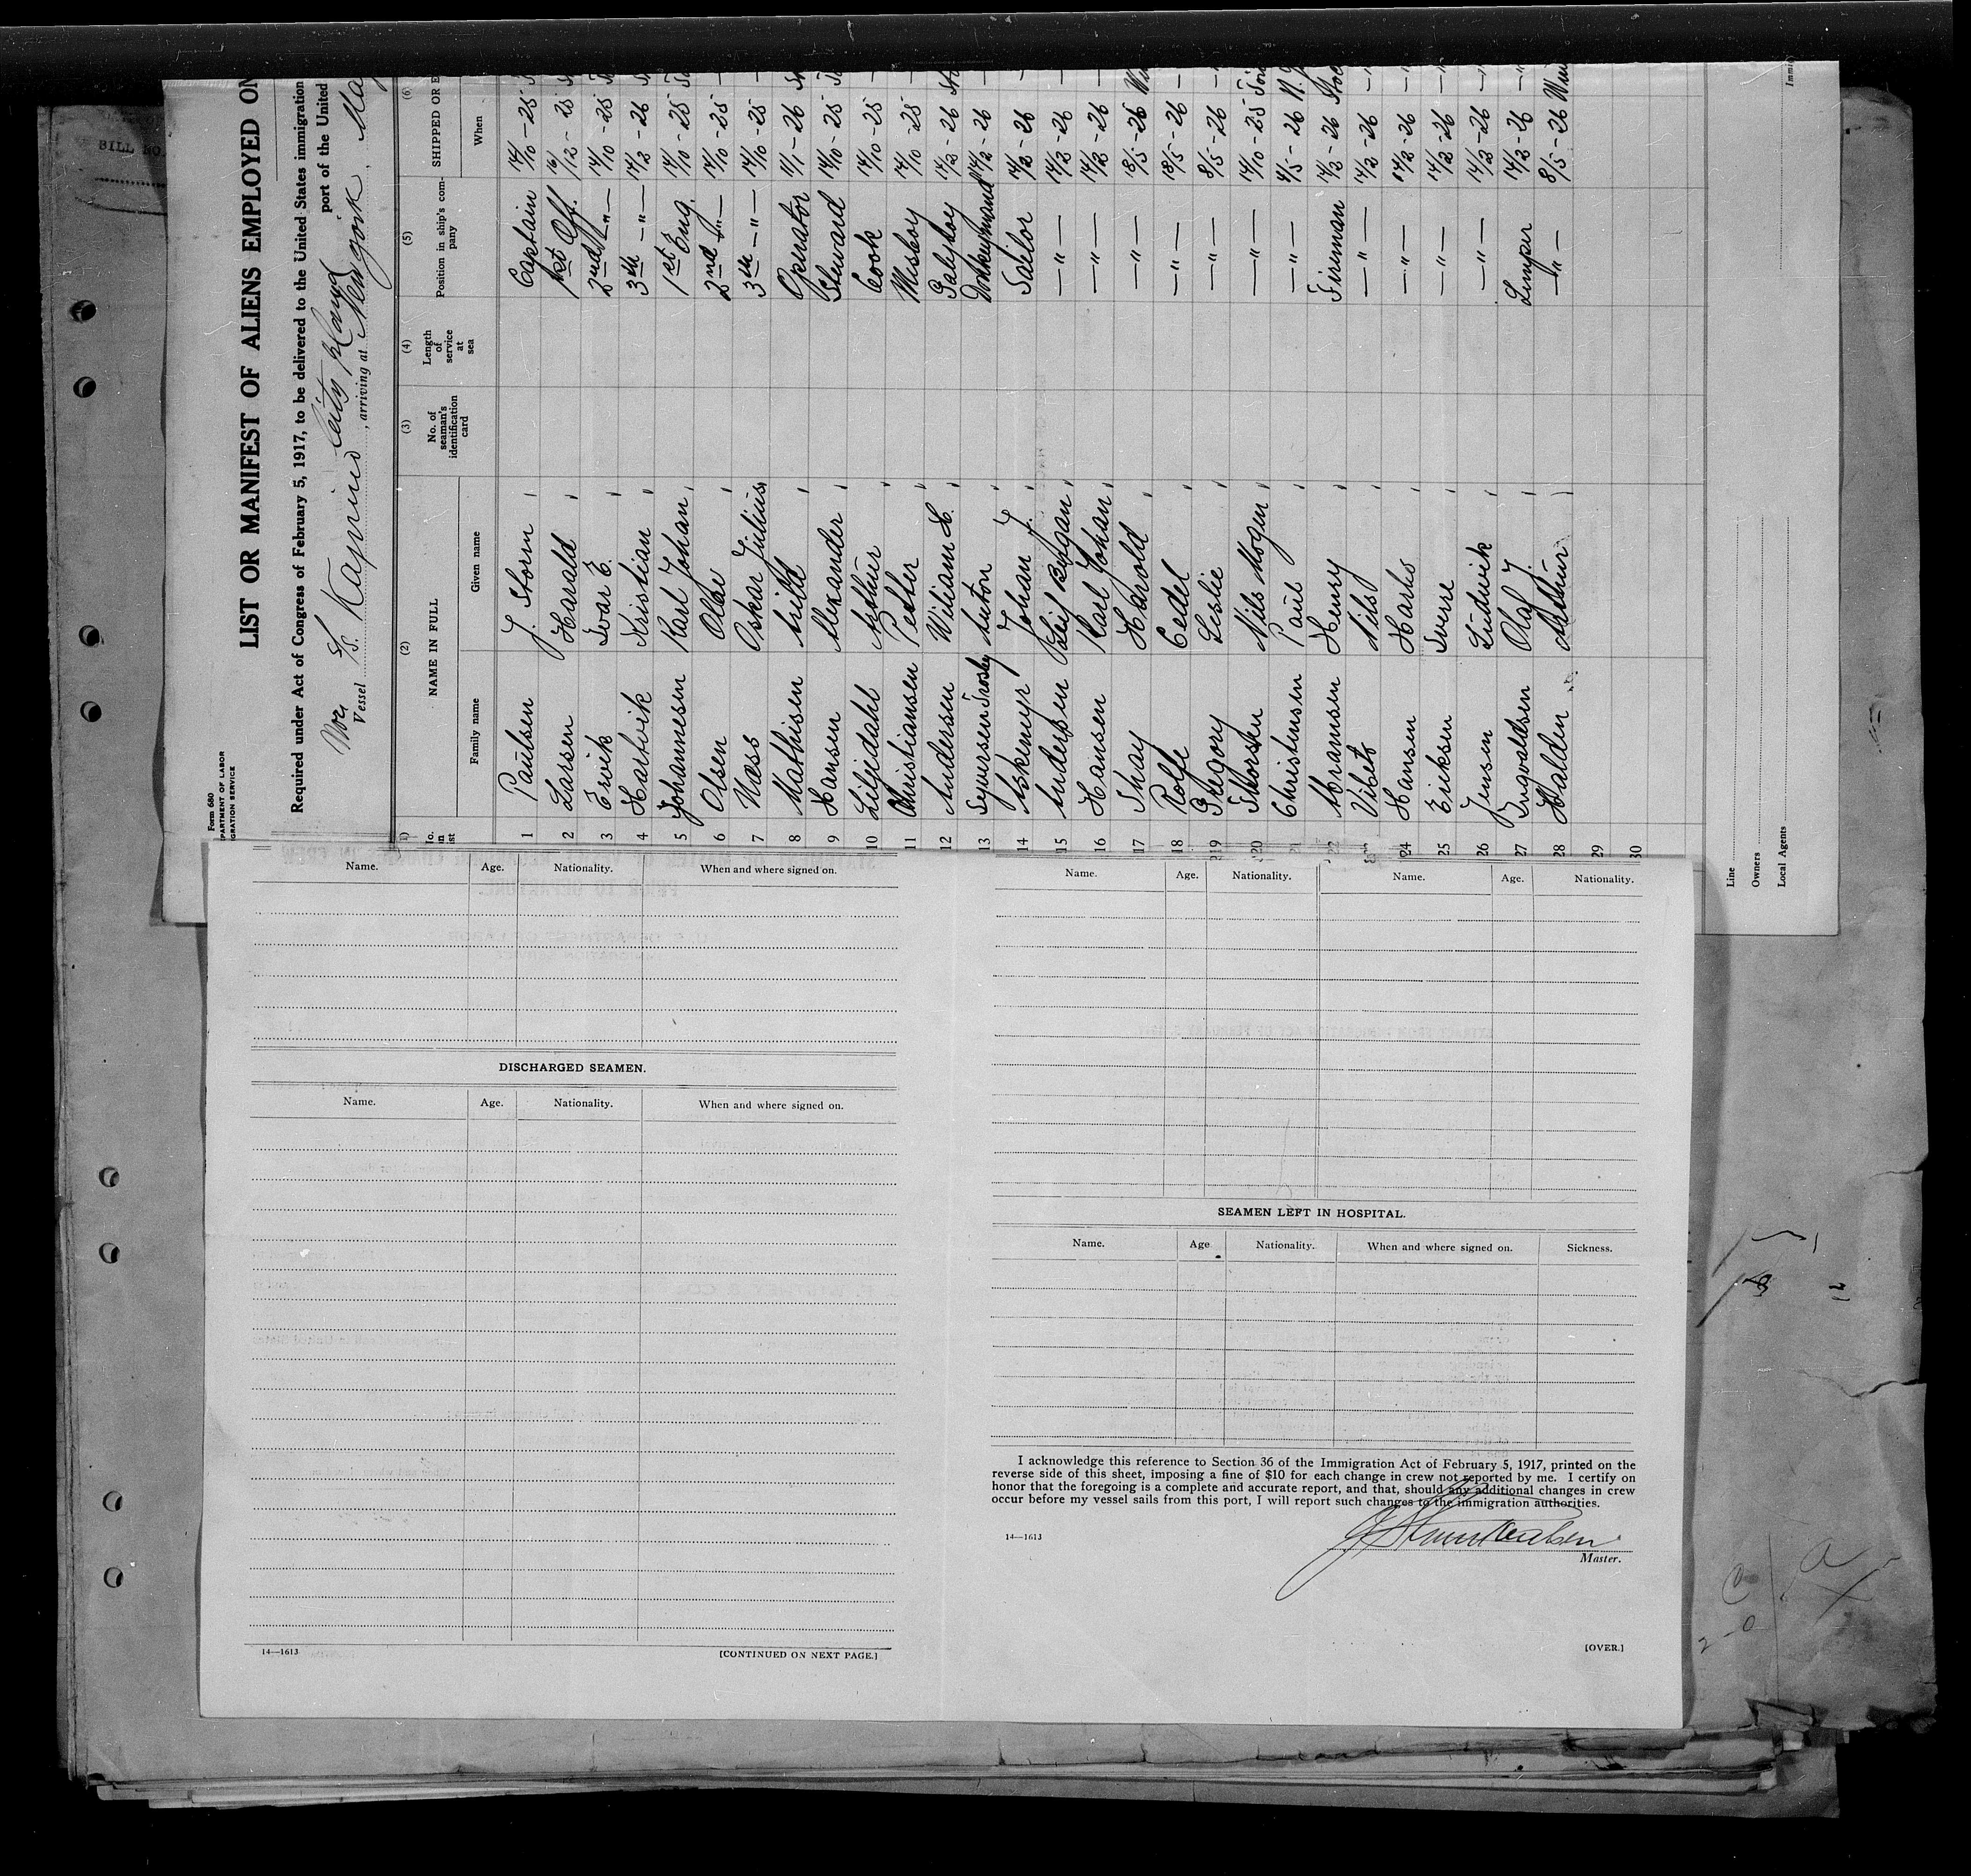 BILL NO.
Form 680
PARTMENT OF LABOR
GRATION SERVICE
LIST OR MANIFEST OF ALIENS EMPLOYED ON
Required under Act of Congress of February 5, 1917, to be delivered to the United States immigration
port of the United
Vessel S/s. , arriving at Newyork, Ma
(2) (3) (4) (5) (6)
NAME IN FULL
No. of seaman's identification card
Length of service at sea
Position in ship's company
SHIPPED OR E
Family name Given name When
1 Paulsen J. Storm Captain 14/10-25
2 Larsen Harald 1st Off.
3 Ervik Ivar E. 2nd -"- 14/10-25
4 Hartvik Kristian 3th -"- 14/2-26
5 Johannesen Karl Johan 1st Eng. 14/10-25
6 Olsen Olav 2nd -"- 14/10-25
7 Næss Oskar Julius 3th -"- 14/10-25
8 Mathisen Arild Operator 11/1-26
9 Hansen Alexander Steward 14/10-25
10 Liljedahl Arthur Cook 14/10-25
11 Christiansen Petter Messboy 14/10-25
12 Andersen Wiliam H. 14/2-26
13 Anton Donkeymand 14/2-26
14 Johan J. Sailor 14/2-26
15 Andersen Leif -"- 14/2-26
16 Hansen Karl Johan -"- 14/2-26
17 Shay Harold -"-
18 Rolfe Cedel -"-
19 Gregory Leslie -"- 8/5-26
20 Nils Mogen -"- 14/10-25
21 Christensen Paul -"-
22 Henry Fireman 14/2-26
23 Nils -"- 14/2-26
24 Hansen -"- 14/2-26
25 Eriksen Sverre -"- 14/2-26
26 Jensen Ludvik -"- 14/2-26
27 Ingvaldsen Olaf J. Lemper 14/2-26
28 Halden Arthur -"- 8/5-26
29
30
Line
Owners
Local Agents
Immi
Name. Age. Nationality. When and where signed on.
DISCHARGED SEAMEN.
Name. Age. Nationality. When and where signed on.
14—1613
[CONTINUED ON NEXT PAGE.]
Name. Age. Nationality. Name. Age. Nationality.
SEAMEN LEFT IN HOSPITAL.
Name. Age Nationality. When and where signed on. Sickness.
I acknowledge this reference to Section 36 of the Immigration Act of February 5, 1917, printed on the
reverse side of this sheet, imposing a fine of $10 for each change in crew not reported by me. I certify on
honor that the foregoing is a complete and accurate report, and that, should any additional changes in crew
occur before my vessel sails from this port, I will report such changes to the immigration authorities.
14—1613
J Storm Paulsen
Master.
[OVER.]